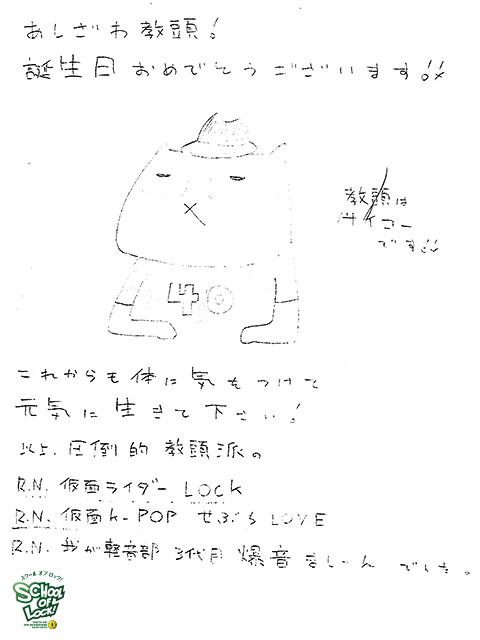 あしざわ教頭!
誕生日おめでとうございます!!
教頭は
サイコー
です!!
40
これからも体に気をつけて
元気に生きて下さい!
以上、圧倒的教頭派の
R.N. 仮面ライダー LOCK
R.N. 仮面K-POP せぶち LOVE
R.N. 我が軽音部 3代目 爆音ましーん でした。
スクール オブ ロック!
SCHOOL OF LOCK!